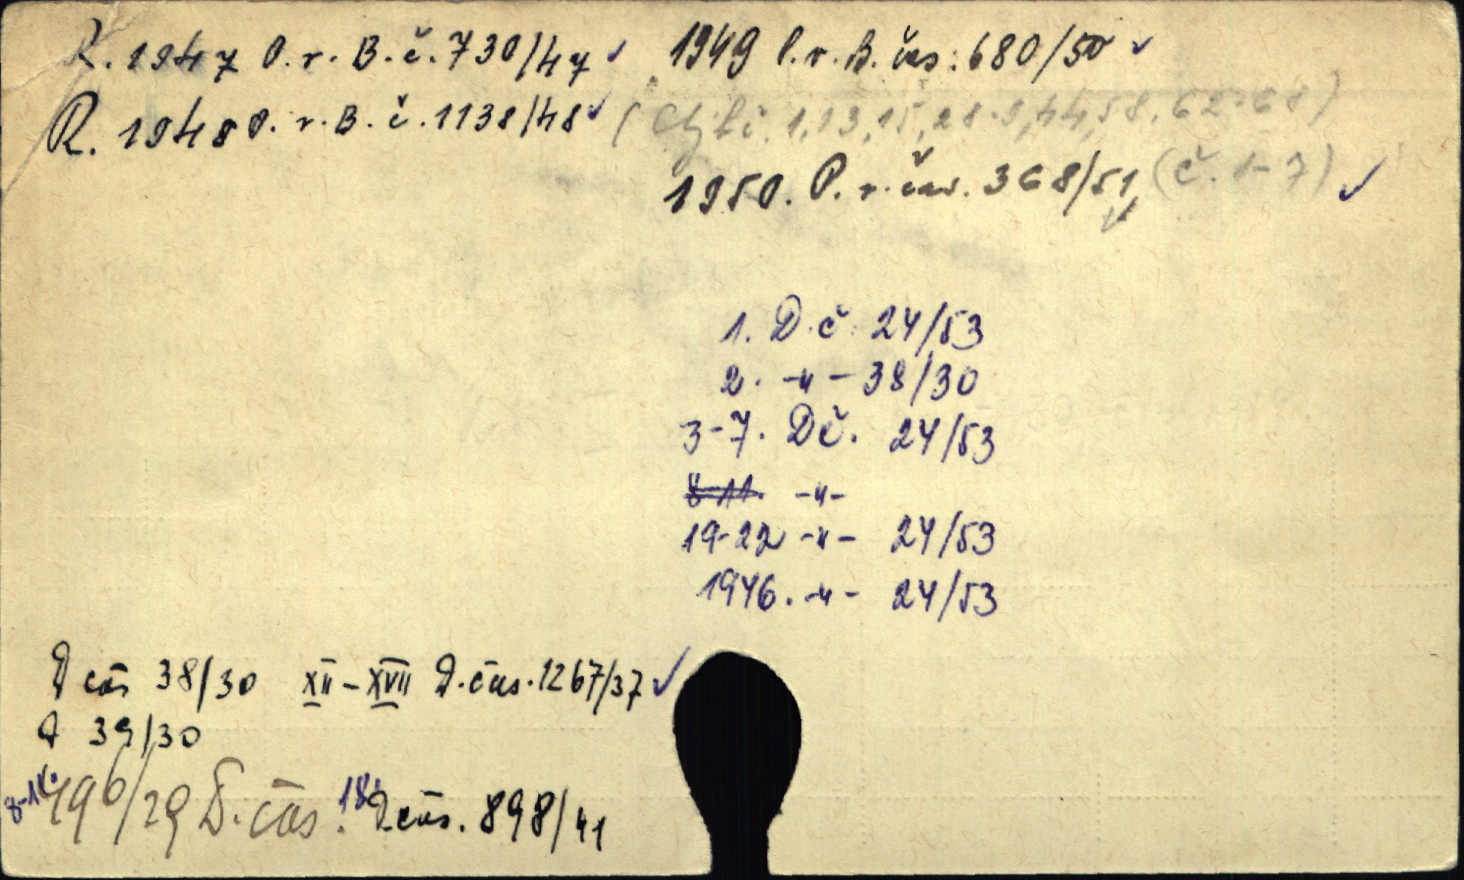 R. 1947 P. r. B. č. 730/47 ✓ 1949 P. r. B. čas: 680/50 ✓
R. 1948 P. r. B. č. 1138/48 ✓ (Chybí č. 1,13,15,28-9,44,58,62-68)
1950. P. r. čas. 368/51 (č. 1-7) ✓
1. D. č. 24/53
2. -"- 38/30
3-7. Dč. 24/53
8-11. -"-
19-22 -"- 24/53
1946. -"- 24/53
D čas 38/30 XII-XVII D. čas. 1267/37 ✓
39/30
196/29 D. čas. 18. D čas. 898/41